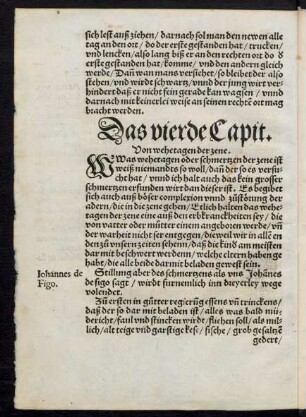 sich lest auß ziehen / darnach sol man den newen alle
tag an den ort / do der erste gestanden hat / trucken /
vnd lencken / also lang biß er an den rechten ort do d̕
erste gestanden hat / komme / vnd den andern gleich
werde / Dañ wan mans versicht / so bleibet der also
stehen / vnd wirdt schwartz / vnnd der jung wirt ver-
hindert daß er nicht sein gerade kan wagsen / vnnd
darnach mit keinerlei weise an seinen rechtē ort mag
bracht werden.
Das vierde Capit.
Von wehetagen der zene.
WAs wehetagen oder schmertzen der zene ist
weiß niemandts so woll / dañ der so es versu-
cht hat / vnnd ich halt auch das kein grosser
schmertzen erfunden wirt dan dieser ist. Es begibet
sich auch auß böser complexion vnnd zustörung der
adern / die in die zene gehen / Etlich halten das wehe-
tagen der zene eine auß den erbkranckheiten sey / die
von vatter oder mütter einem angeboren werde / vñ
der warheit nicht ser entgegen / die weil wir in allē en
den zu vnsern zeiten sehenn / daß die kind̕ am meisten
dar mit beschwert werdenn / welche eltern haben ge
habt / die alle beide darmit beladen gewest sein.
Johannes de
Figo.
Stillung aber des schmertzens als vns Johānes
de figo sagt / wirdt furnemlich inn dreyerley wege
volendet.
Zů ersten in gütter regierūg essens vñ trinckens /
daß der so dar mit beladen ist / alles was bald mü-
dericht / faul vnd stincken wirdt / fliehen soll / als mil-
lich / alt teige vnd garstige kesz / fische / grob gesaltzē
gedert /